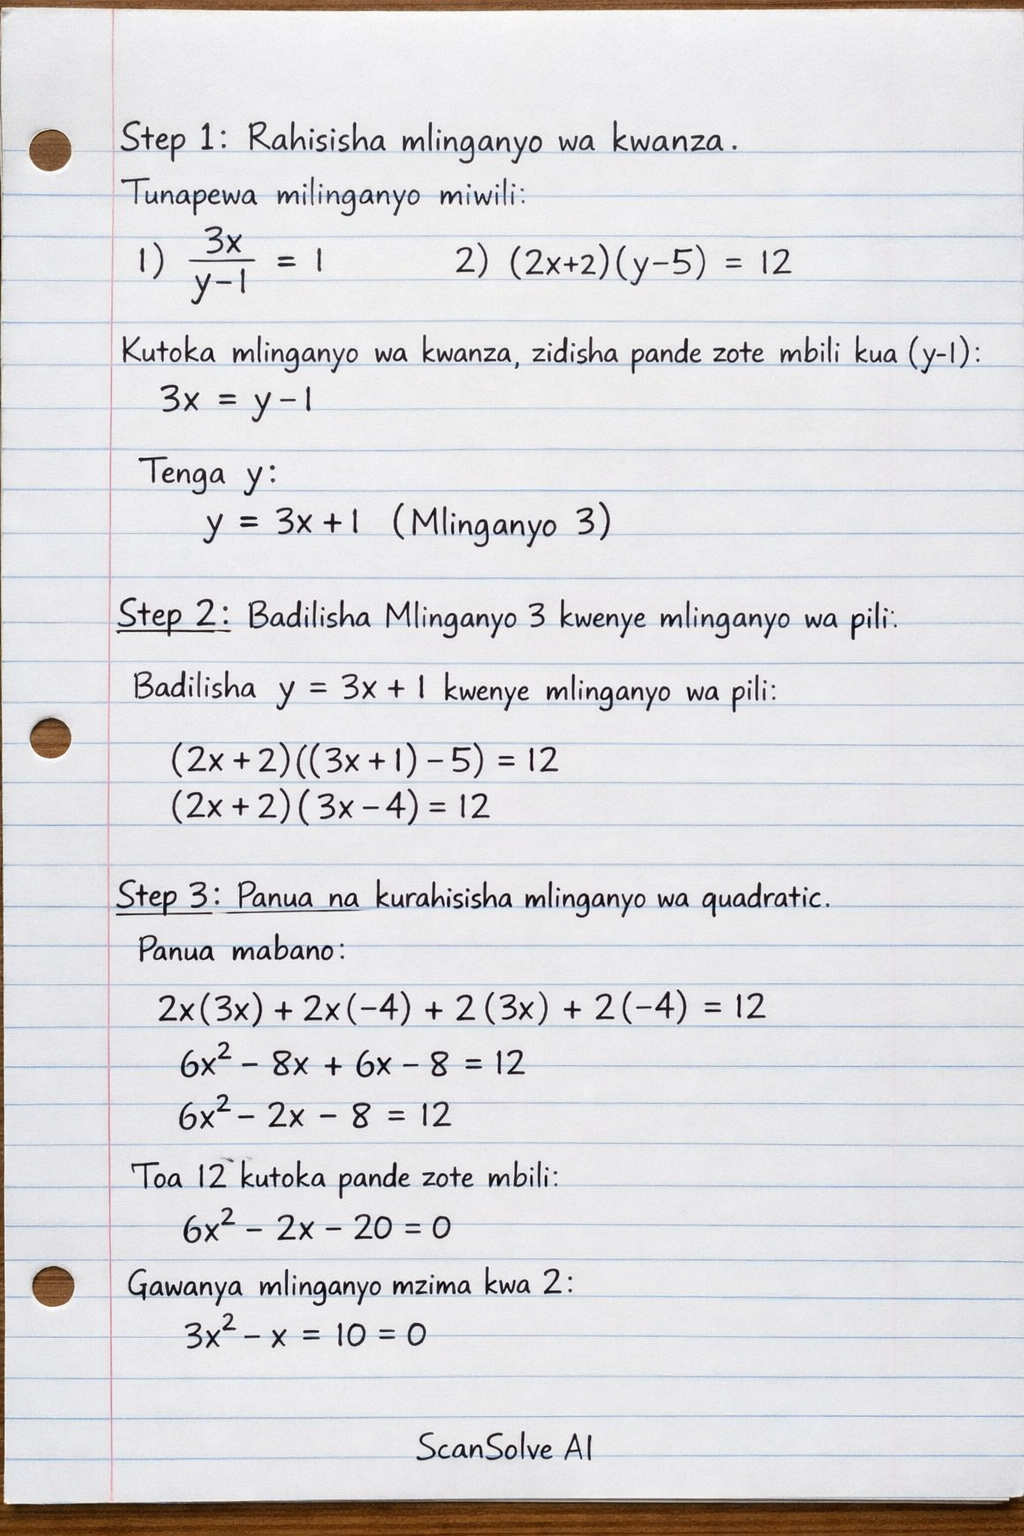 Step 1: Rahisisha mlinganyo wa kwanza.
Tunapewa milinganyo miwili:
1) 3x/(y-1) = 1 2) (2x+2)(y-5) = 12
Kutoka mlinganyo wa kwanza, zidisha pande zote mbili kua (y-1):
3x = y-1
Tenga y:
y = 3x+1 (Mlinganyo 3)
Step 2: Badilisha Mlinganyo 3 kwenye mlinganyo wa pili:
Badilisha y = 3x + 1 kwenye mlinganyo wa pili:
(2x+2)((3x+1)-5) = 12
(2x+2)(3x-4) = 12
Step 3: Panua na kurahisisha mlinganyo wa quadratic.
Panua mabano:
2x(3x) + 2x(-4) + 2(3x) + 2(-4) = 12
6x² - 8x + 6x - 8 = 12
6x² - 2x - 8 = 12
Toa 12 kutoka pande zote mbili:
6x² - 2x - 20 = 0
Gawanya mlinganyo mzima kwa 2:
3x² - x = 10 = 0
ScanSolve AI